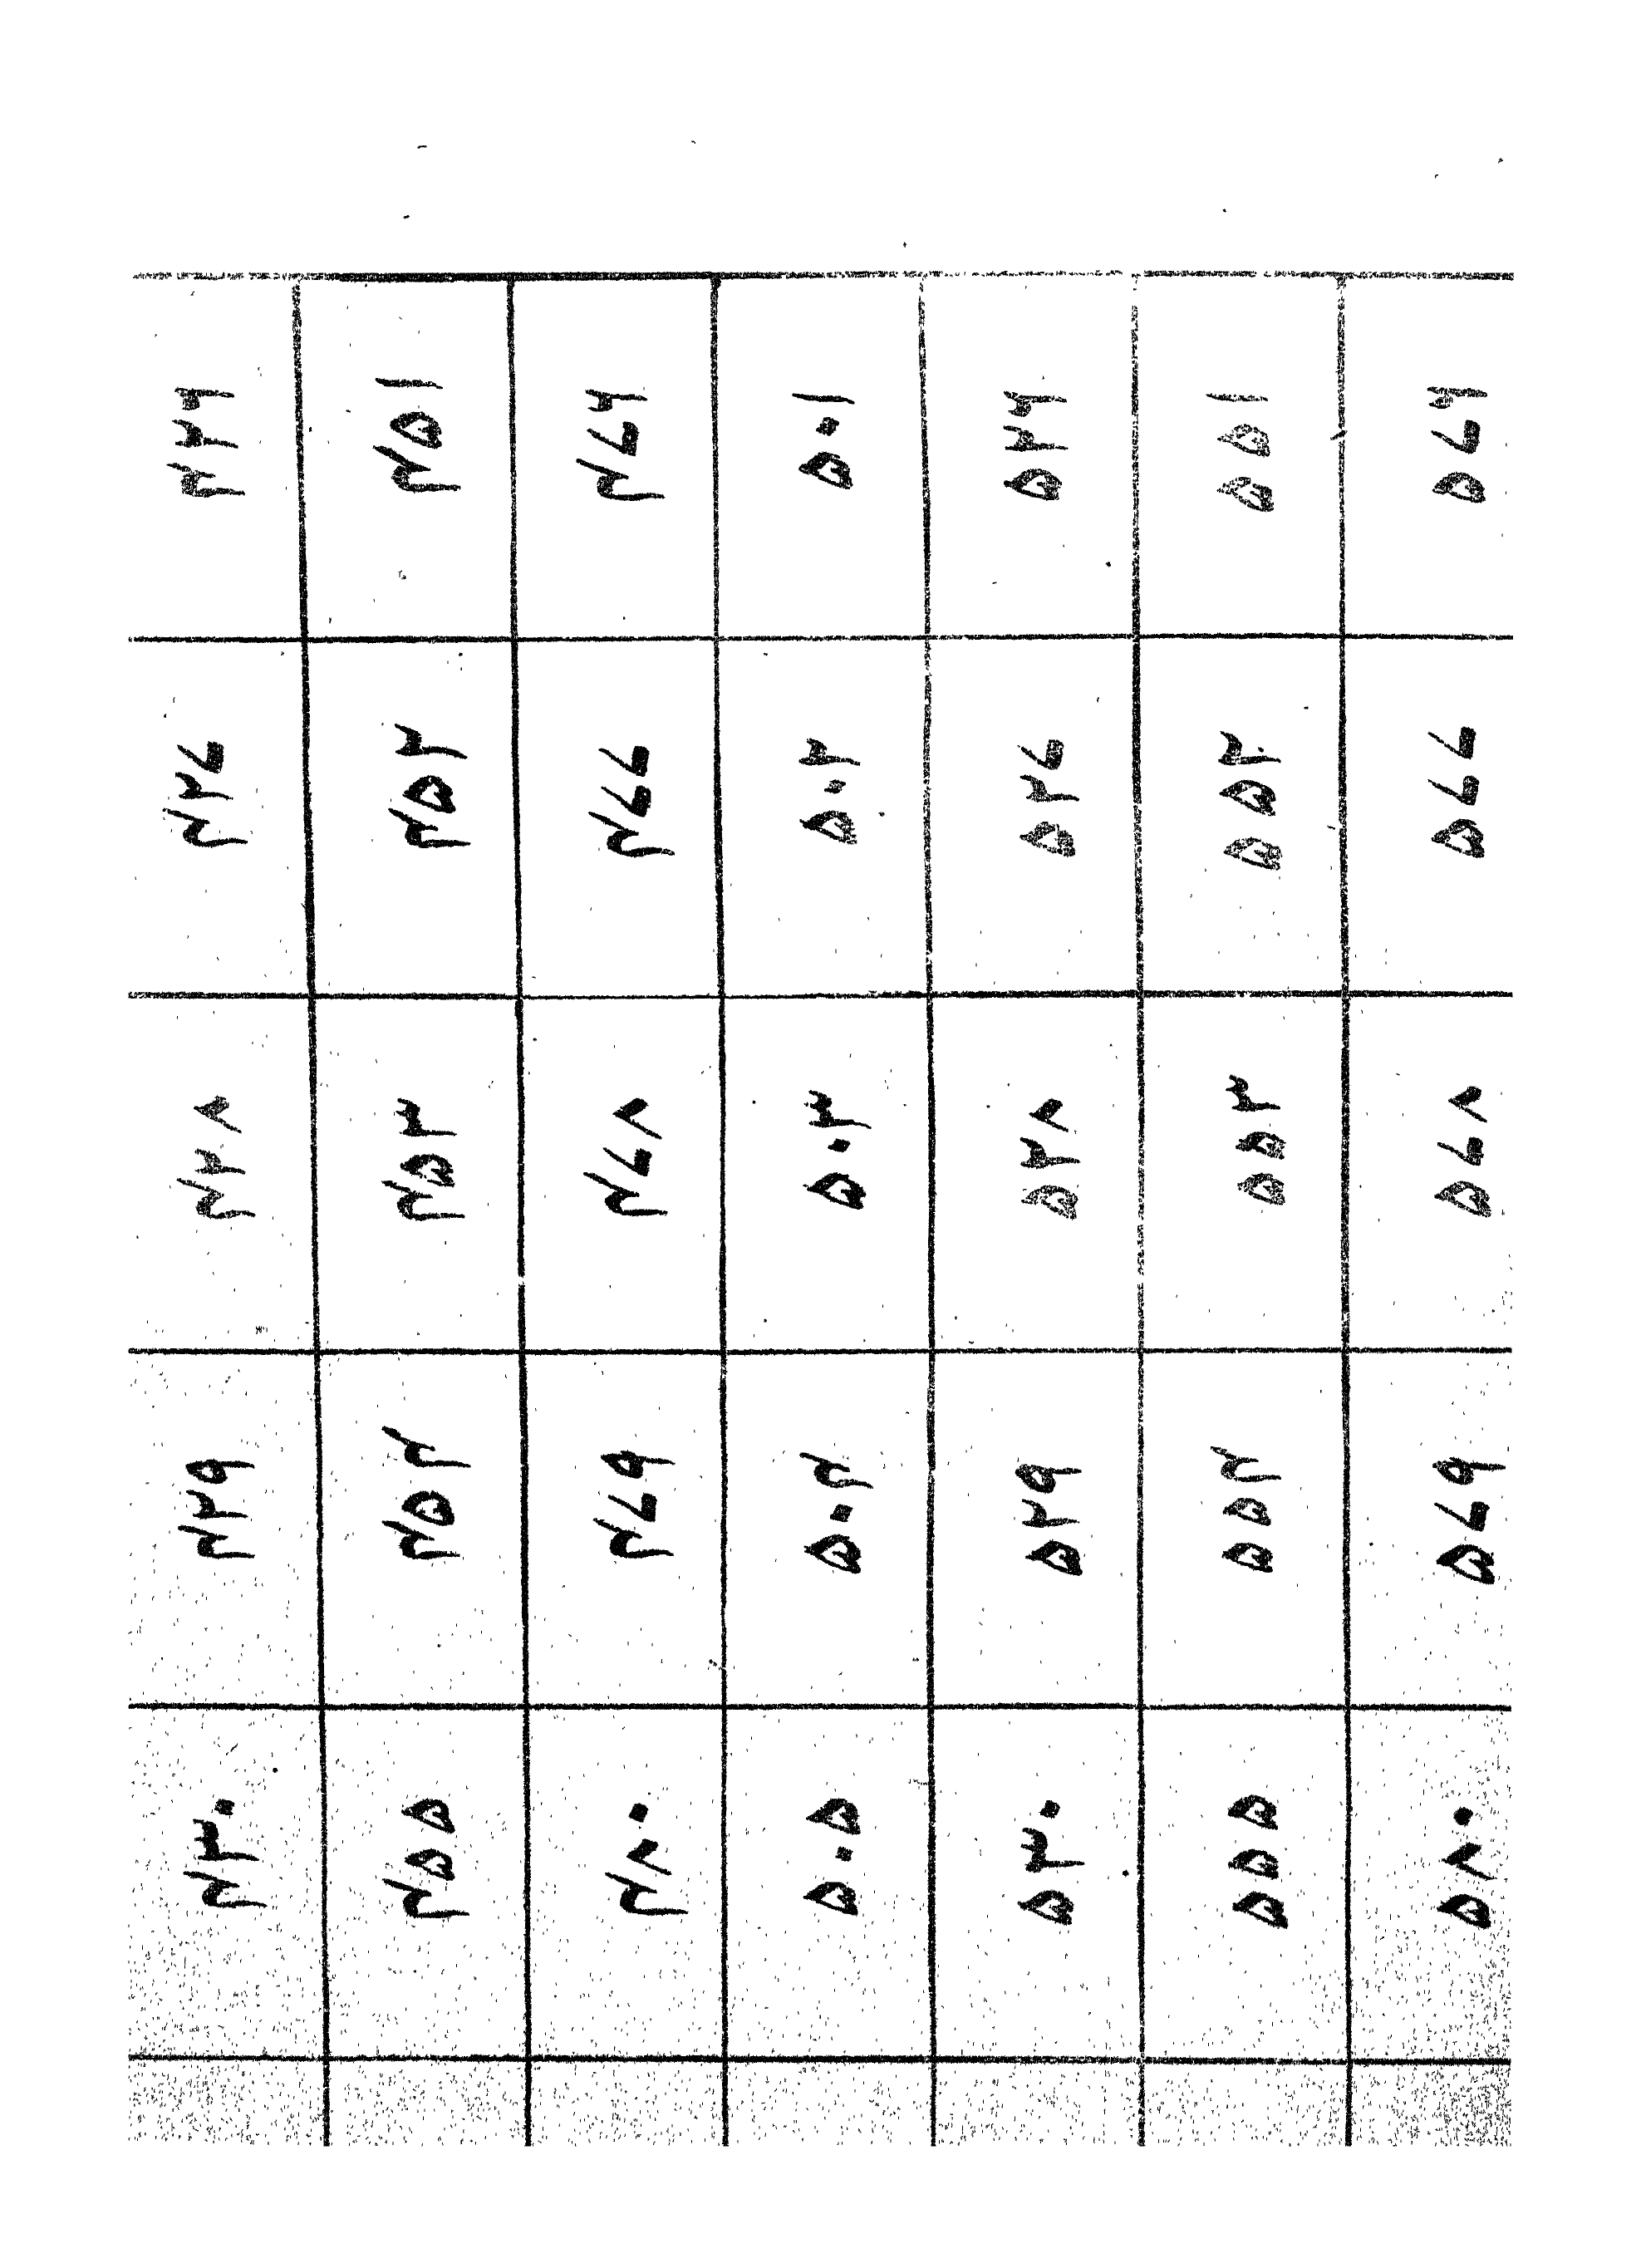 ۴۲۶ ۴۲۷ ۴۲۸ ۴۲۹ ۴۳۰
۴۵۱ ۴۵۲ ۴۵۳ ۴۵۴ ۴۵۵
۴۷۶ ۴۷۷ ۴۷۸ ۴۷۹ ۴۸۰
۵۰۱ ۵۰۲ ۵۰۳ ۵۰۴ ۵۰۵
۵۲۶ ۵۲۷ ۵۲۸ ۵۲۹ ۵۳۰
۵۵۱ ۵۵۲ ۵۵۳ ۵۵۴ ۵۵۵
۵۷۶ ۵۷۷ ۵۷۸ ۵۷۹ ۵۸۰